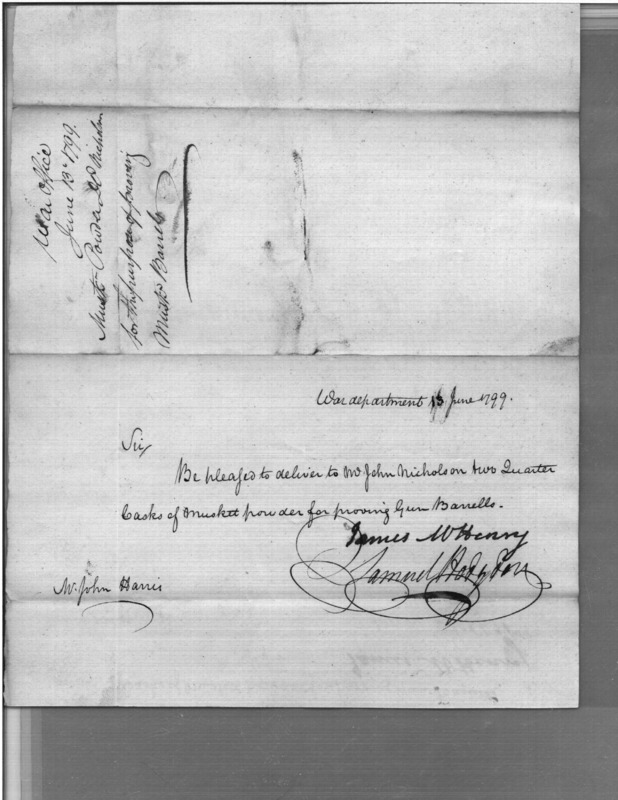 War Office
June 13th 1799.
Muskt Powder Jn Nicholson
for the purpose of proving
Muskt Barrels
War department 13 June 1799.
Sir,
Be pleased to deliver to Mr John Nicholson two Quarter
Casks of Muskett powder for proving Gun Barrells.
James McHenry
Samuel Hodgdon
Mr. John Harris